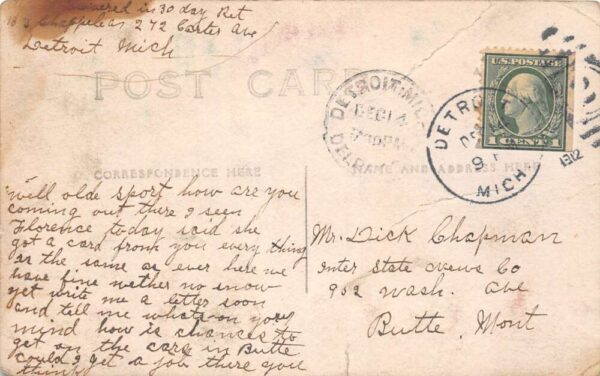 answered in 30 day Ret
Chappele as 272 Carter Ave
Detroit Mich
POST CARD
DETROIT, MICH.
DEC 14
U.S. POSTAGE
1 CENT 1
DETROIT
9 P
MICH.
1912
CORRESPONDENCE HERE
NAME AND ADDRESS HERE
"well olde sport how are you
coming out there I seen
Florence today said she
got a card from you every thing
ar the same as ever here we
have fine wether no snow
yet write me a letter soon
and tell me whats on your
mind how is chances to
get on the cars in Butte
could I get a job there you
think
Mr. Dick Chapman
inter state news Co
902 Wash. ave
Butte, Mont